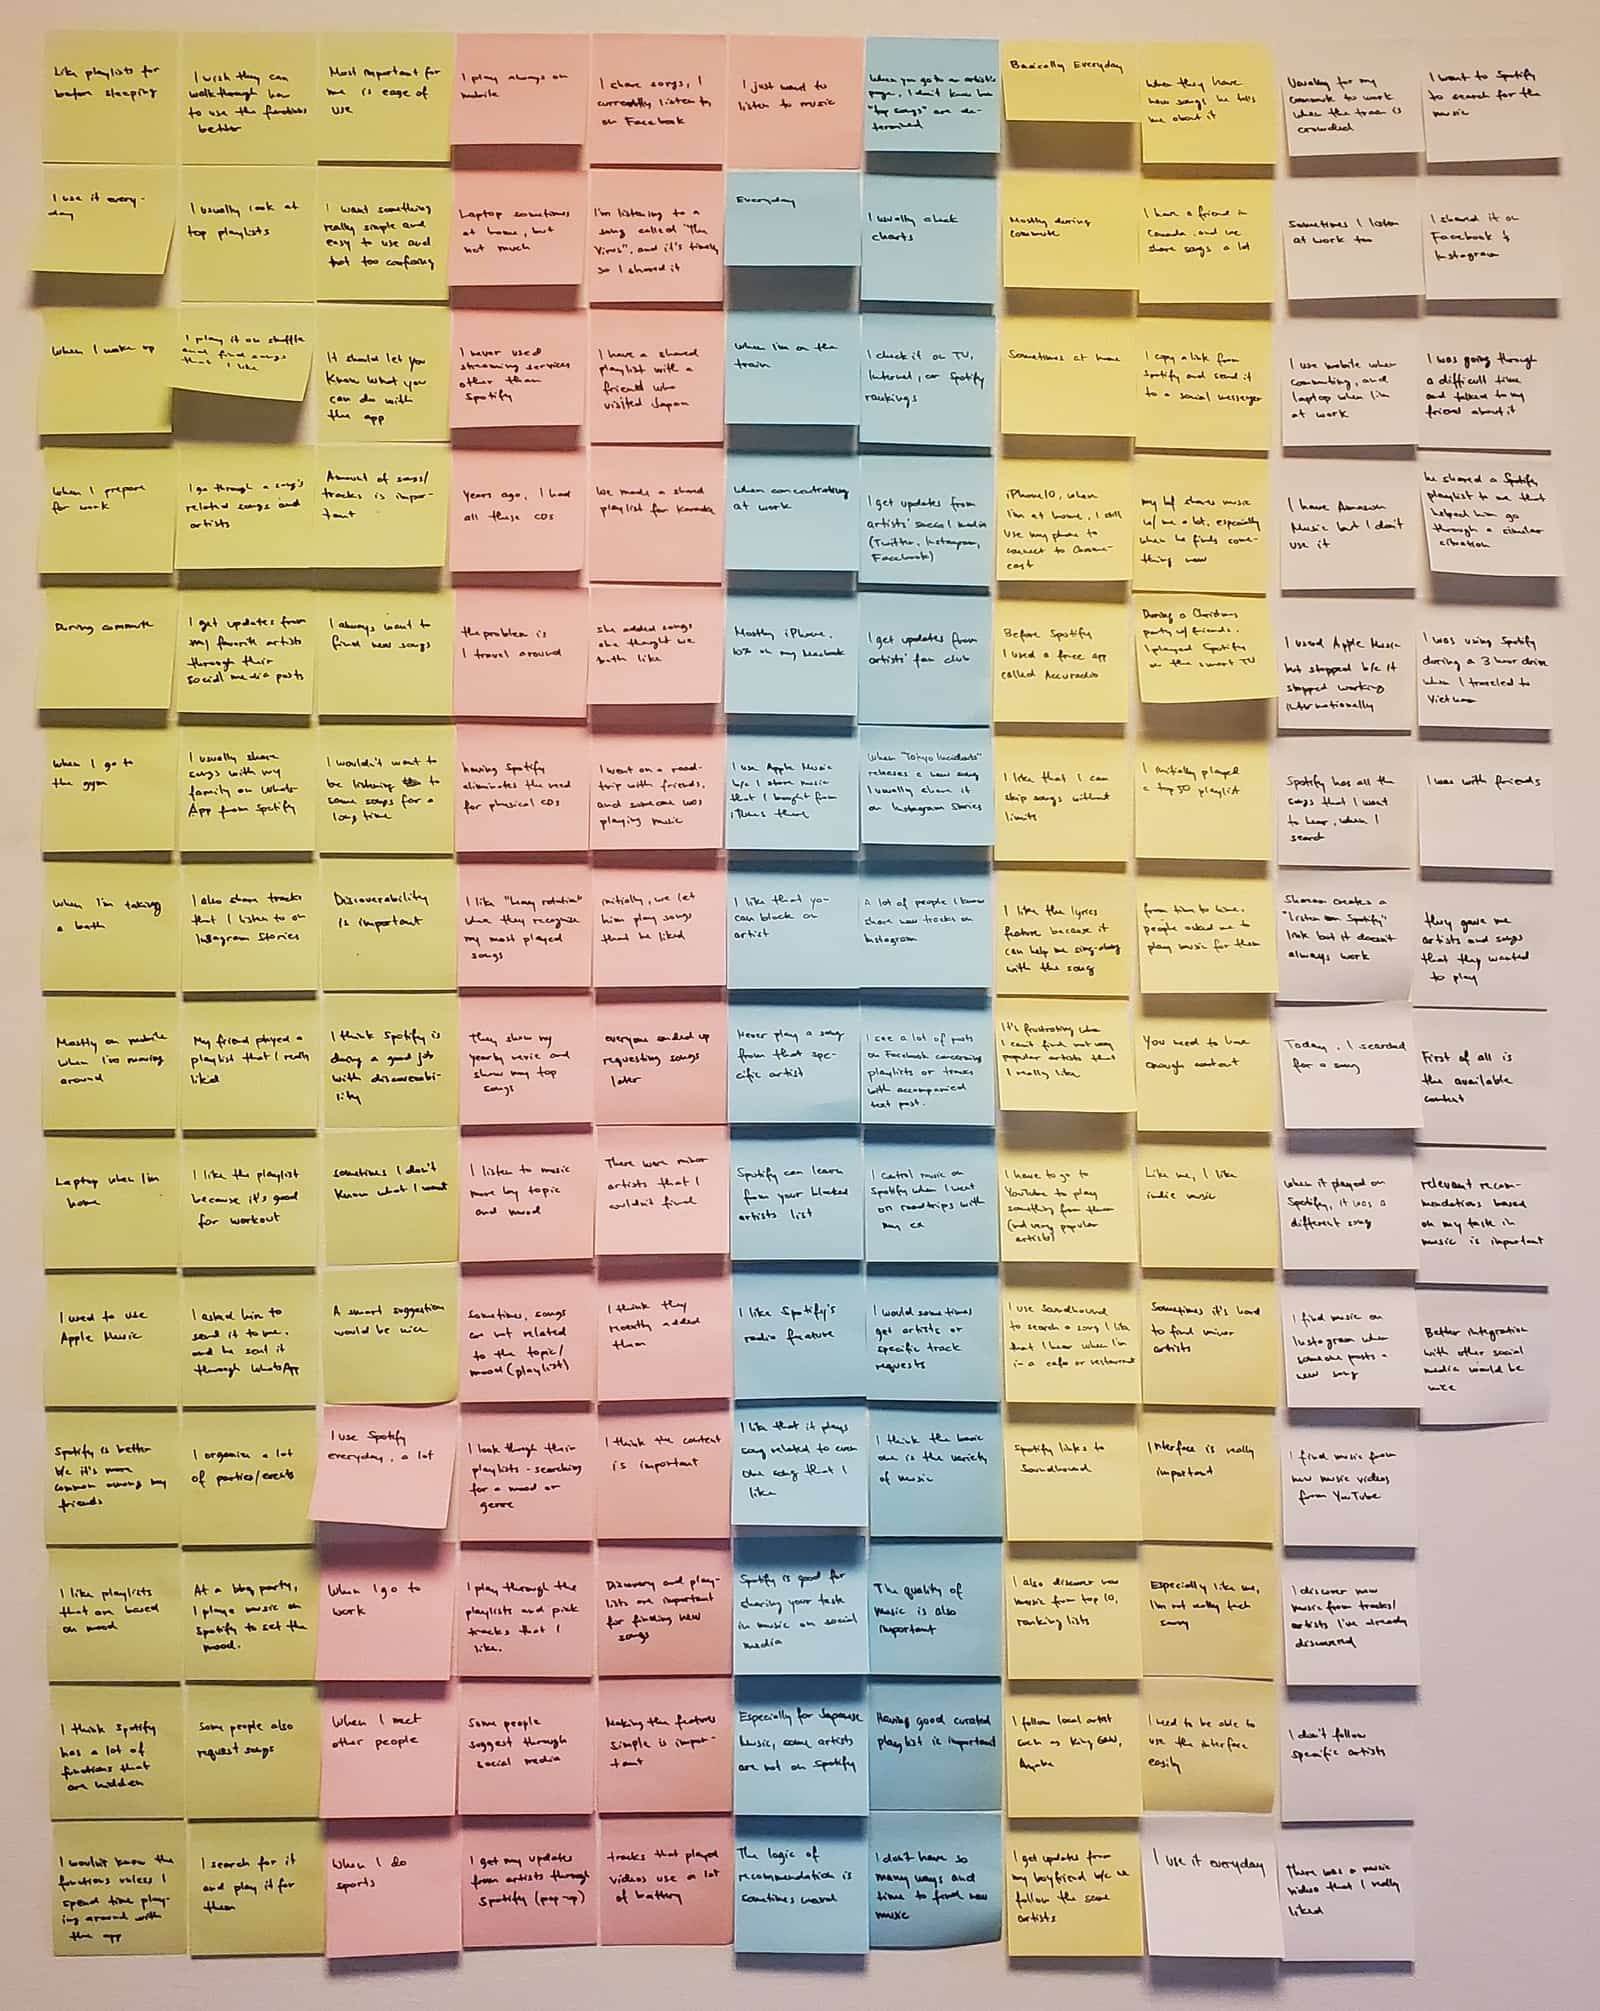 Like playlists for
before sleeping
I use it every-
day
When I wake up
When I prepare
for work
During commute
When I go to
the gym
When I'm taking
a bath
Mostly on mobile
when I'm moving
around
Laptop when I'm
home
I used to use
Apple Music
Spotify is better
b/c it's more
common among my
friends
I like playlists
that are based
on mood
I think Spotify
has a lot of
functions that
are hidden
I wouldn't know the
functions unless I
spend time play-
ing around with
the app
I wish they can
walkthrough how
to use the functions
better
I usually look at
top playlists
I play it on shuffle
and find songs
that I like
I go through a song's
related songs and
artists
I get updates from
my favorite artists
through their
social media posts
I usually share
songs with my
family on Whats
App from Spotify
I also share tracks
that I listen to on
Instagram Stories
My friend played a
playlist that I really
liked
I like the playlist
because it's good
for workout
I asked him to
send it to me.
and he sent it
through WhatsApp
I organize a lot
of parties/events
At a bbq party,
I played music on
Spotify to set the
mood.
Some people also
request songs
I search for it
and play it for
them
Most important for
me is ease of
use
I want something
really simple and
easy to use and
not too confusing
It should let you
know what you
can do with
the app
Amount of songs/
tracks is impor-
tant
I always want to
find new songs
I wouldn't want to
be listening to
same songs for a
long time
Discoverability
is important
I think Spotify is
doing a good job
with discoverabi-
lity
Sometimes I don't
know what I want
A smart suggestion
would be nice
I use Spotify
everyday, a lot
When I go to
work
When I meet
other people
When I do
sports
I play always on
mobile
Laptop sometimes
at home, but
not much
I never used
streaming services
other than
Spotify
Years ago, I had
all these CDs
the problem is
I travel around
having Spotify
eliminates the need
for physical CDs
I like "heavy rotation"
when they recognize
my most played
songs
They show my
yearly music and
show my top
songs
I listen to music
more by topic
and mood
Sometimes, songs
are not related
to the topic/
mood (playlist)
I look though their
playlists - searching
for a mood or
genre
I play through the
playlists and pick
tracks that I
like.
Some people
suggest through
social media
I get my updates
from artists through
Spotify (pop-up)
I share songs, I
currently listen to
on Facebook
I'm listening to a
song called "The
Virus", and it's timely
so I shared it
I have a shared
playlist with a
friend who
visited Japan
We made a shared
playlist for Karaoke
she added songs
she thought we
both like
I went on a road-
trip with friends,
and someone was
playing music
initially, we let
him play songs
that he liked
everyone ended up
requesting songs
later
There were minor
artists that I
couldn't find
I think they
recently added
them
I think the content
is important
Discovery and play-
lists are important
for finding new
songs
Making the features
simple is impor-
tant
tracks that played
videos use a lot
of battery
I just want to
listen to music
Everyday
When I'm on the
train
When concentrating
at work
Mostly iPhone.
10% on my Macbook
I use Apple Music
b/c I store music
that I bought from
iTunes there
I like that you
can block an
artist
Never play a song
from that spe-
cific artist
Spotify can learn
from your blocked
artists list
I like Spotify's
radio feature
I like that it plays
song related to even
one song that I
like
Spotify is good for
sharing your taste
in music on social
media
Especially for Japanese
music, some artists
are not on Spotify
The logic of
recommendation is
sometimes weird
When you go to an artist's
page, I don't know how
"top songs" are de-
termined
I usually check
charts
I check it on TV,
Internet, or Spotify
rankings
I get updates from
artists' social media
(Twitter, Instagram,
Facebook)
I get updates from
artists' fan club
When "Tokyo Incidents"
releases a new song
I usually share it
on Instagram Stories
A lot of people I know
share new tracks on
Instagram
I see a lot of posts
on Facebook concerning
playlists or tracks
with accompanied
text post.
I control music on
Spotify when I went
on roadtrips with
my ex
I would sometimes
get artists or
specific track
requests
I think the basic
one is the variety
of music
The quality of
music is also
important
Having good curated
playlist is important
I don't have so
many ways and
time to find new
music
Basically Everyday
Mostly during
commute
Sometimes at home
iPhone10, when
I'm at home, I still
use my phone to
connect to Chrome-
cast
Before Spotify
I used a free app
called Accuradio
I like that I can
skip songs without
limits
I like the lyrics
feature because it
can help me sing-along
with the song
It's frustrating when
I can't find not very
popular artists that
I really like
I have to go to
YouTube to play
something from them
(not very popular
artists)
I use Soundhound
to search a song I like
that I hear when I'm
in a cafe or restaurant
Spotify links to
Soundhound
I also discover new
music from top 10,
ranking lists
I follow local artist
such as King Gnu,
Ayaka
I get updates from
my boyfriend b/c we
follow the same
artists
When they have
new songs he tells
me about it
I have a friend in
Canada and we
share songs a lot
I copy a link from
Spotify and send it
to a social messenger
my bf shares music
w/ me a lot, especially
when he finds some-
thing new
During a Christmas
party w/ friends.
I played Spotify
on the smart TV
I initially played
a top 50 playlist
from time to time,
people asked me to
play music for them
You need to have
enough content
Like me, I like
indie music
Sometimes it's hard
to find minor
artists
Interface is really
important
Especially like me,
I'm not really tech
savvy
I need to be able to
use the interface
easily
I use it everyday
Usually for my
commute to work
when the train is
crowded
Sometimes I listen
at work too
I use mobile when
commuting, and
laptop when I'm
at work
I have Amazon
Music but I don't
use it
I used Apple Music
but stopped b/c it
stopped working
internationally
Spotify has all the
songs that I want
to hear, when I
search
Shazam creates a
"listen on Spotify"
link but it doesn't
always work
Today, I searched
for a song
When it played on
Spotify, it was a
different song
I find music on
Instagram when
someone posts a
new song
I find music from
new music videos
from YouTube
I discover new
music from tracks/
artists I've already
discovered
I don't follow
specific artists
There was a music
video that I really
liked
I went to Spotify
to search for the
music
I shared it on
Facebook &
Instagram
I was going through
a difficult time
and talked to my
friend about it
he shared a Spotify
playlist to me that
helped him go
through a similar
situation
I was using Spotify
during a 3 hour drive
when I traveled to
Vietnam
I was with friends
they gave me
artists and songs
that they wanted
to play
First of all is
the available
content
relevant recom-
mendations based
on my taste in
music is important
Better integration
with other social
media would be
nice